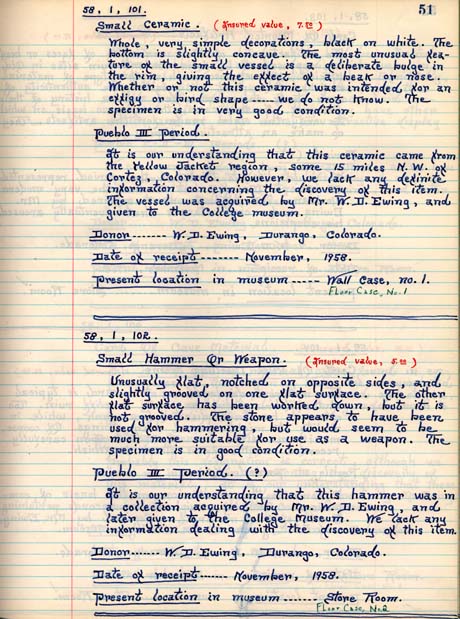 58, 1, 101.
51
Small Ceramic. (Insured value, 7.00)
Whole, very simple decorations, black on white. The
bottom is slightly concave. The most unusual fea-
ture of the small vessel is a deliberate bulge in
the rim, giving the effect of a beak or nose.
Whether or not this ceramic was intended for an
effigy or bird shape ----- we do not know. The
specimen is in very good condition.
Pueblo III Period.
It is our understanding that this ceramic came from
the Yellow Jacket region, some 15 miles N.W. of
Cortez, Colorado. However, we lack any definite
information concerning the discovery of this item.
The vessel was acquired by Mr. W.D. Ewing, and
given to the College museum.
Donor ------- W.D. Ewing, Durango, Colorado.
Date of receipt ------- November, 1958.
Present location in museum ----- Wall Case, no. 1.
Floor Case, No. 1
58, 1, 102.
Small Hammer Or Weapon. (Insured value, 5.00)
Unusually flat, notched on opposite sides, and
slightly grooved on one flat surface. The other
flat surface has been worked down, but it is
not grooved. The stone appears to have been
used for hammering, but would seem to be
much more suitable for use as a weapon. The
specimen is in good condition.
Pueblo III Period. (?)
It is our understanding that this hammer was in
a collection acquired by Mr. W.D. Ewing, and
later given to the College Museum. We lack any
information dealing with the discovery of this item.
Donor ----- W.D. Ewing, Durango, Colorado.
Date of receipt ------ November, 1958.
Present location in museum ------- Store Room.
Floor Case, No. 2